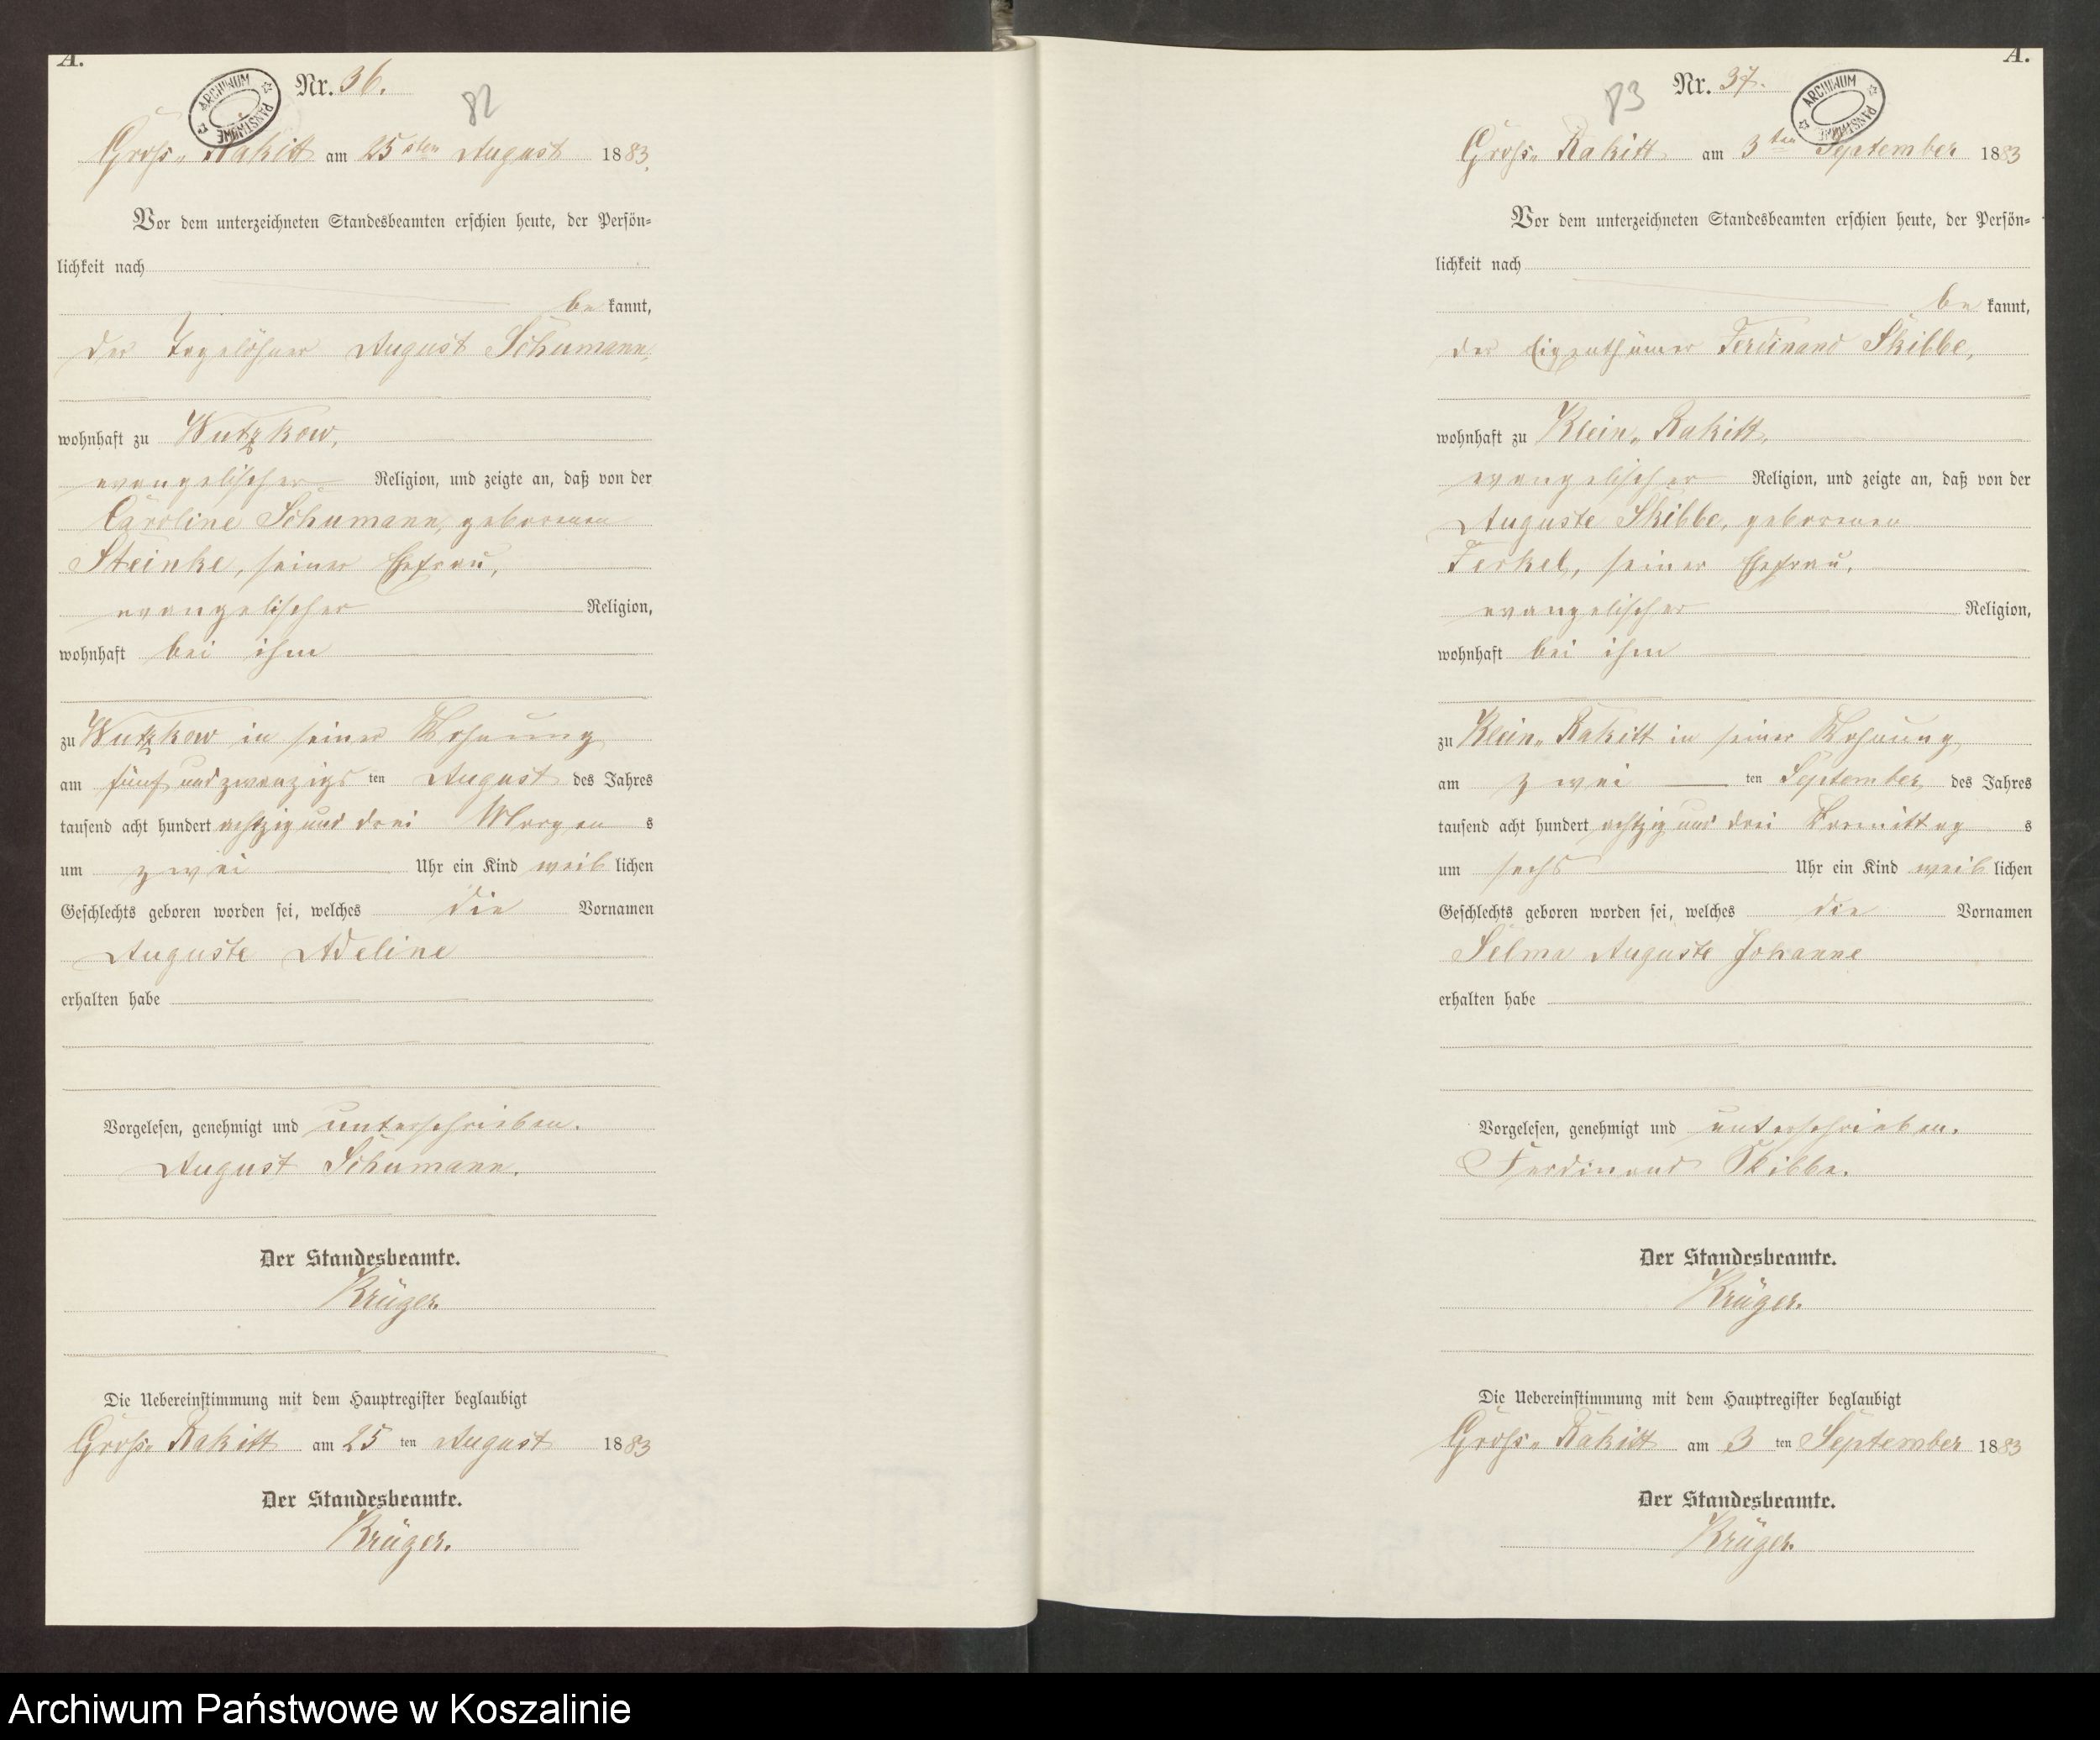 A.
Nr. 36.
82
ARCHIWUM PAŃSTWOWE
Groß„ Rakitt am 25sten August 1883.
Vor dem unterzeichneten Standesbeamten erschien heute, der Persön-
lichkeit nach
be kannt,
der Tagelöhner August Schumann,
wohnhaft zu Wutzkow,
evangelischer Religion, und zeigte an, daß von der
Caroline Schumann, geborenen
Steinke, seiner Ehefrau,
evangelischer Religion,
wohnhaft bei ihm
zu Wutzkow in seiner Wohnung
am fünf und zwanzigs ten August des Jahres
tausend acht hundert achtzig und drei Morgen s
um zwei Uhr ein Kind weib lichen
Geschlechts geboren worden sei, welches die Vornamen
Auguste Adeline
erhalten habe
Vorgelesen, genehmigt und unterschrieben.
August Schumann.
Der Standesbeamte.
Krüger.
Die Uebereinstimmung mit dem Hauptregister beglaubigt
Groß„ Rakitt am 25 ten August 1883
Der Standesbeamte.
Krüger.
A.
Nr. 37.
83
ARCHIWUM PAŃSTWOWE
Groß„ Rakitt am 3ten September 1883
Vor dem unterzeichneten Standesbeamten erschien heute, der Persön-
lichkeit nach
be kannt,
der Eigenthümer Ferdinand Skibbe,
wohnhaft zu Klein„ Rakitt,
evangelischer Religion, und zeigte an, daß von der
Auguste Skibbe, geborenen
Ferkel, seiner Ehefrau,
evangelischer Religion,
wohnhaft bei ihm
zu Klein„ Rakitt in seiner Wohnung
am zwei ten September des Jahres
tausend acht hundert achtzig und drei Vormittag s
um sechs Uhr ein Kind weib lichen
Geschlechts geboren worden sei, welches die Vornamen
Selma Auguste Johanne
erhalten habe
Vorgelesen, genehmigt und unterschrieben.
Ferdinand Skibbe.
Der Standesbeamte.
Krüger.
Die Uebereinstimmung mit dem Hauptregister beglaubigt
Groß„ Rakitt am 3 ten September 1883
Der Standesbeamte.
Krüger.
Archiwum Państwowe w Koszalinie